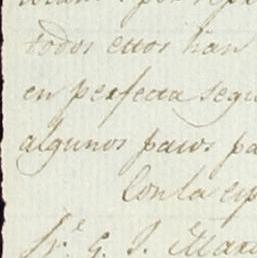 todos ellos han
en perfecta segu
algunos pasos pa
Con la esp
Sr. G. S. Mar